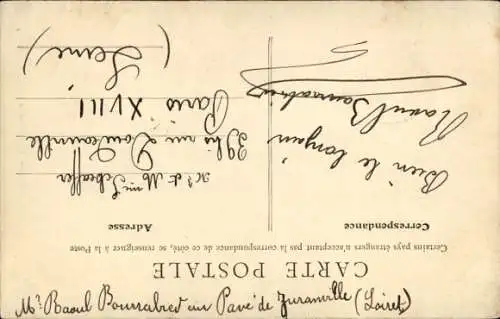 CARTE POSTALE
Certains pays étrangers n'acceptant pas la correspondance de ce côté, se renseigner à la Poste
Correspondance
Adresse
Bien le bonjour
Raoul Bourrabied
Mr et Mme Scheaffer
39 bis rue Doudeauville
Paris XVIII
(Seine)
Mr Raoul Bourrabied au Pavé de Juranville (Loiret)